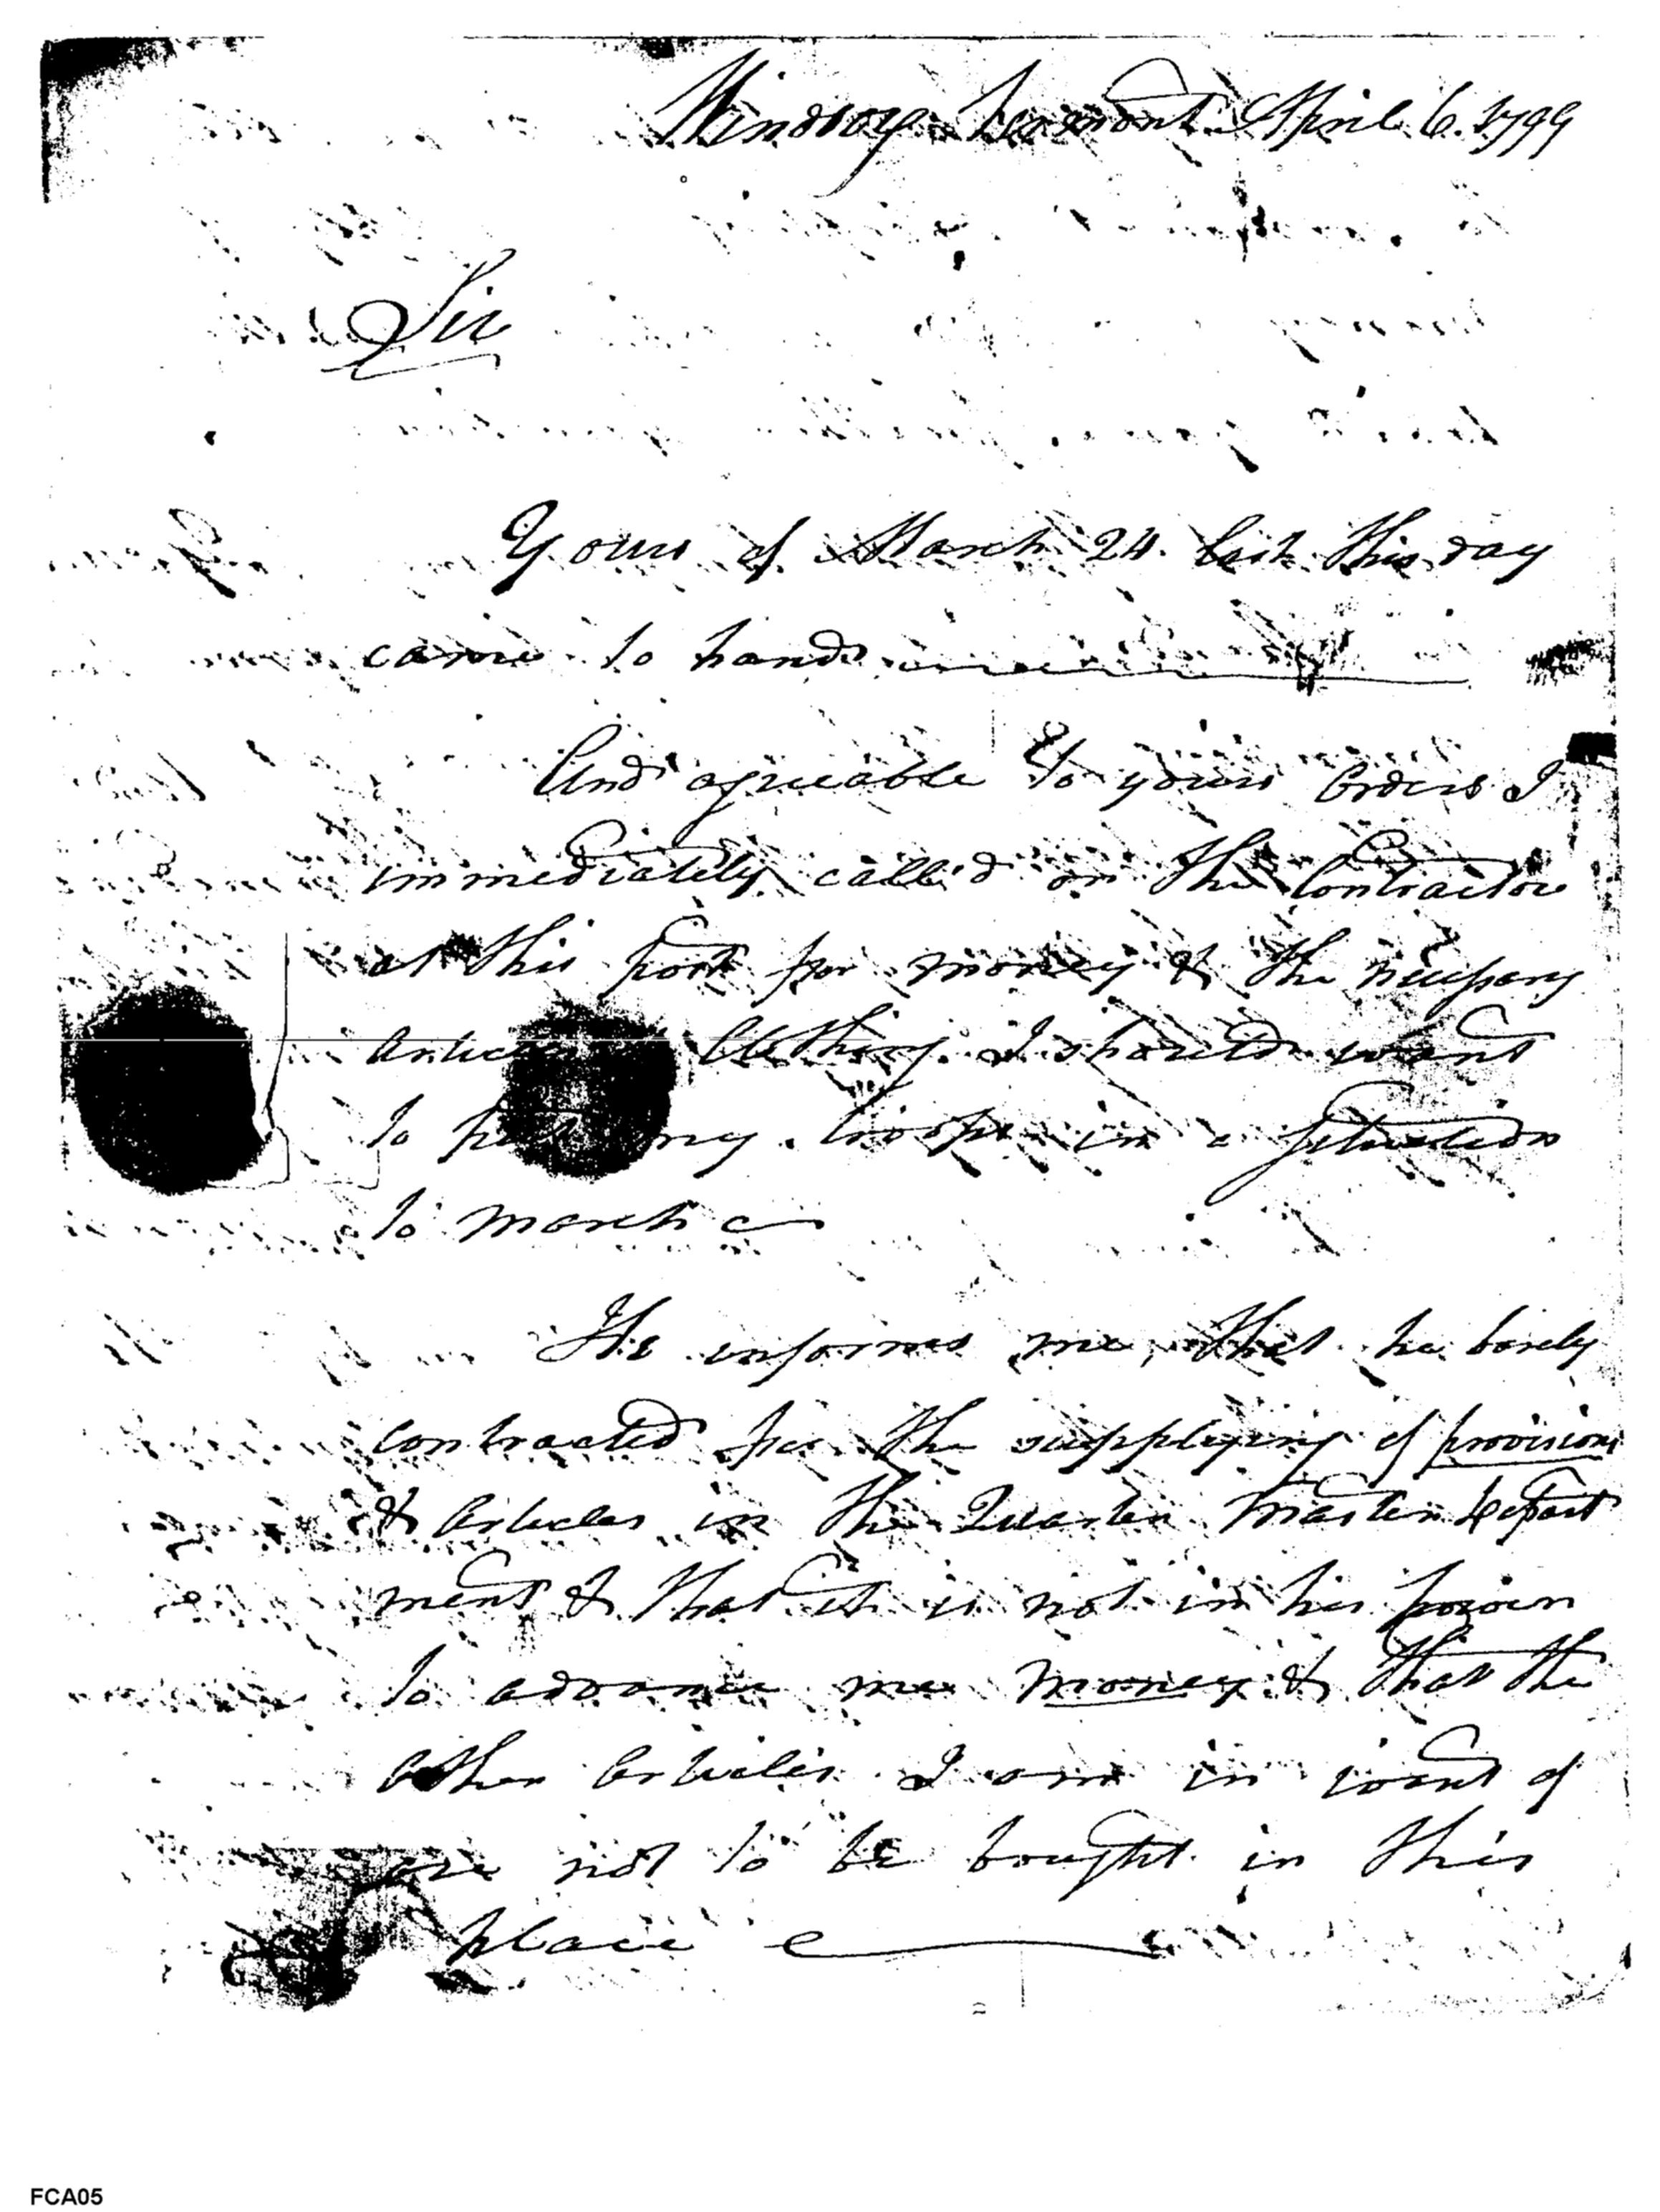 Windsor Vermont April 6. 1799
Sir
Yours of March 24. last this day
came to hand
And agreeable to yours Orders I
immediately call'd on the Contractor
at this post for money & the necessary
Articles Clothing I should want
to put my troops in a situation
to march
He informs me, that he barely
contracted for the supplying of provisions
& Articles in the Quarter Master Depart
ment & that it is not in his power
to advance me money & that the
other Articles I am in want of
are not to be bought in this
place
FCA05